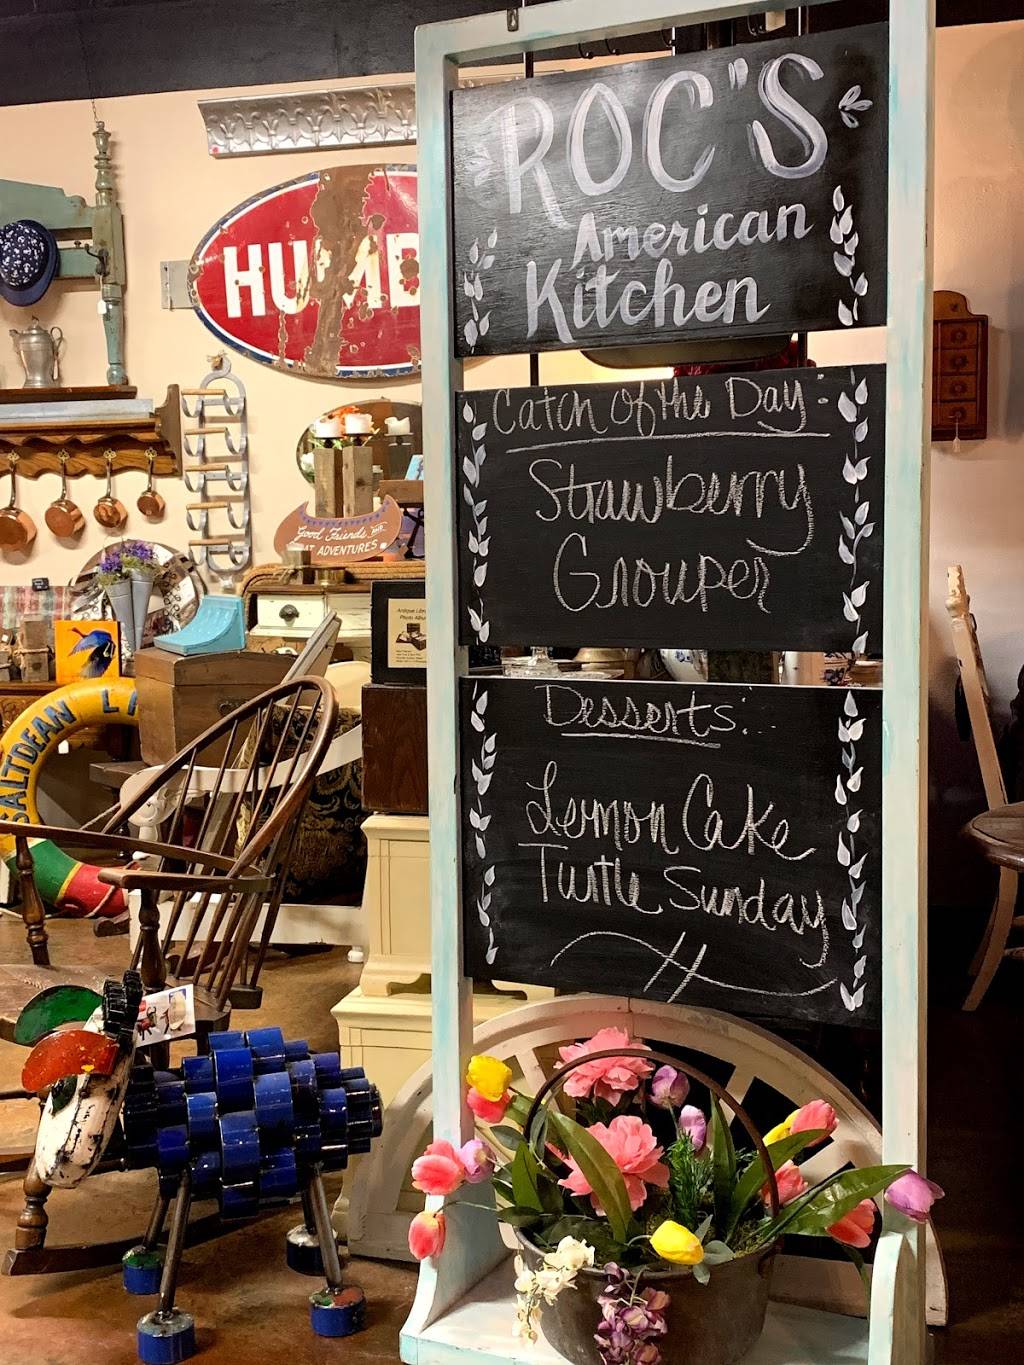 ROC'S
American
Kitchen
Catch of the Day:
Strawberry
Grouper
Desserts:
Lemon Cake
Turtle Sunday
HUMB
Good Friends
AT ADVENTURES
Antique
Photo
SALTDEAN L